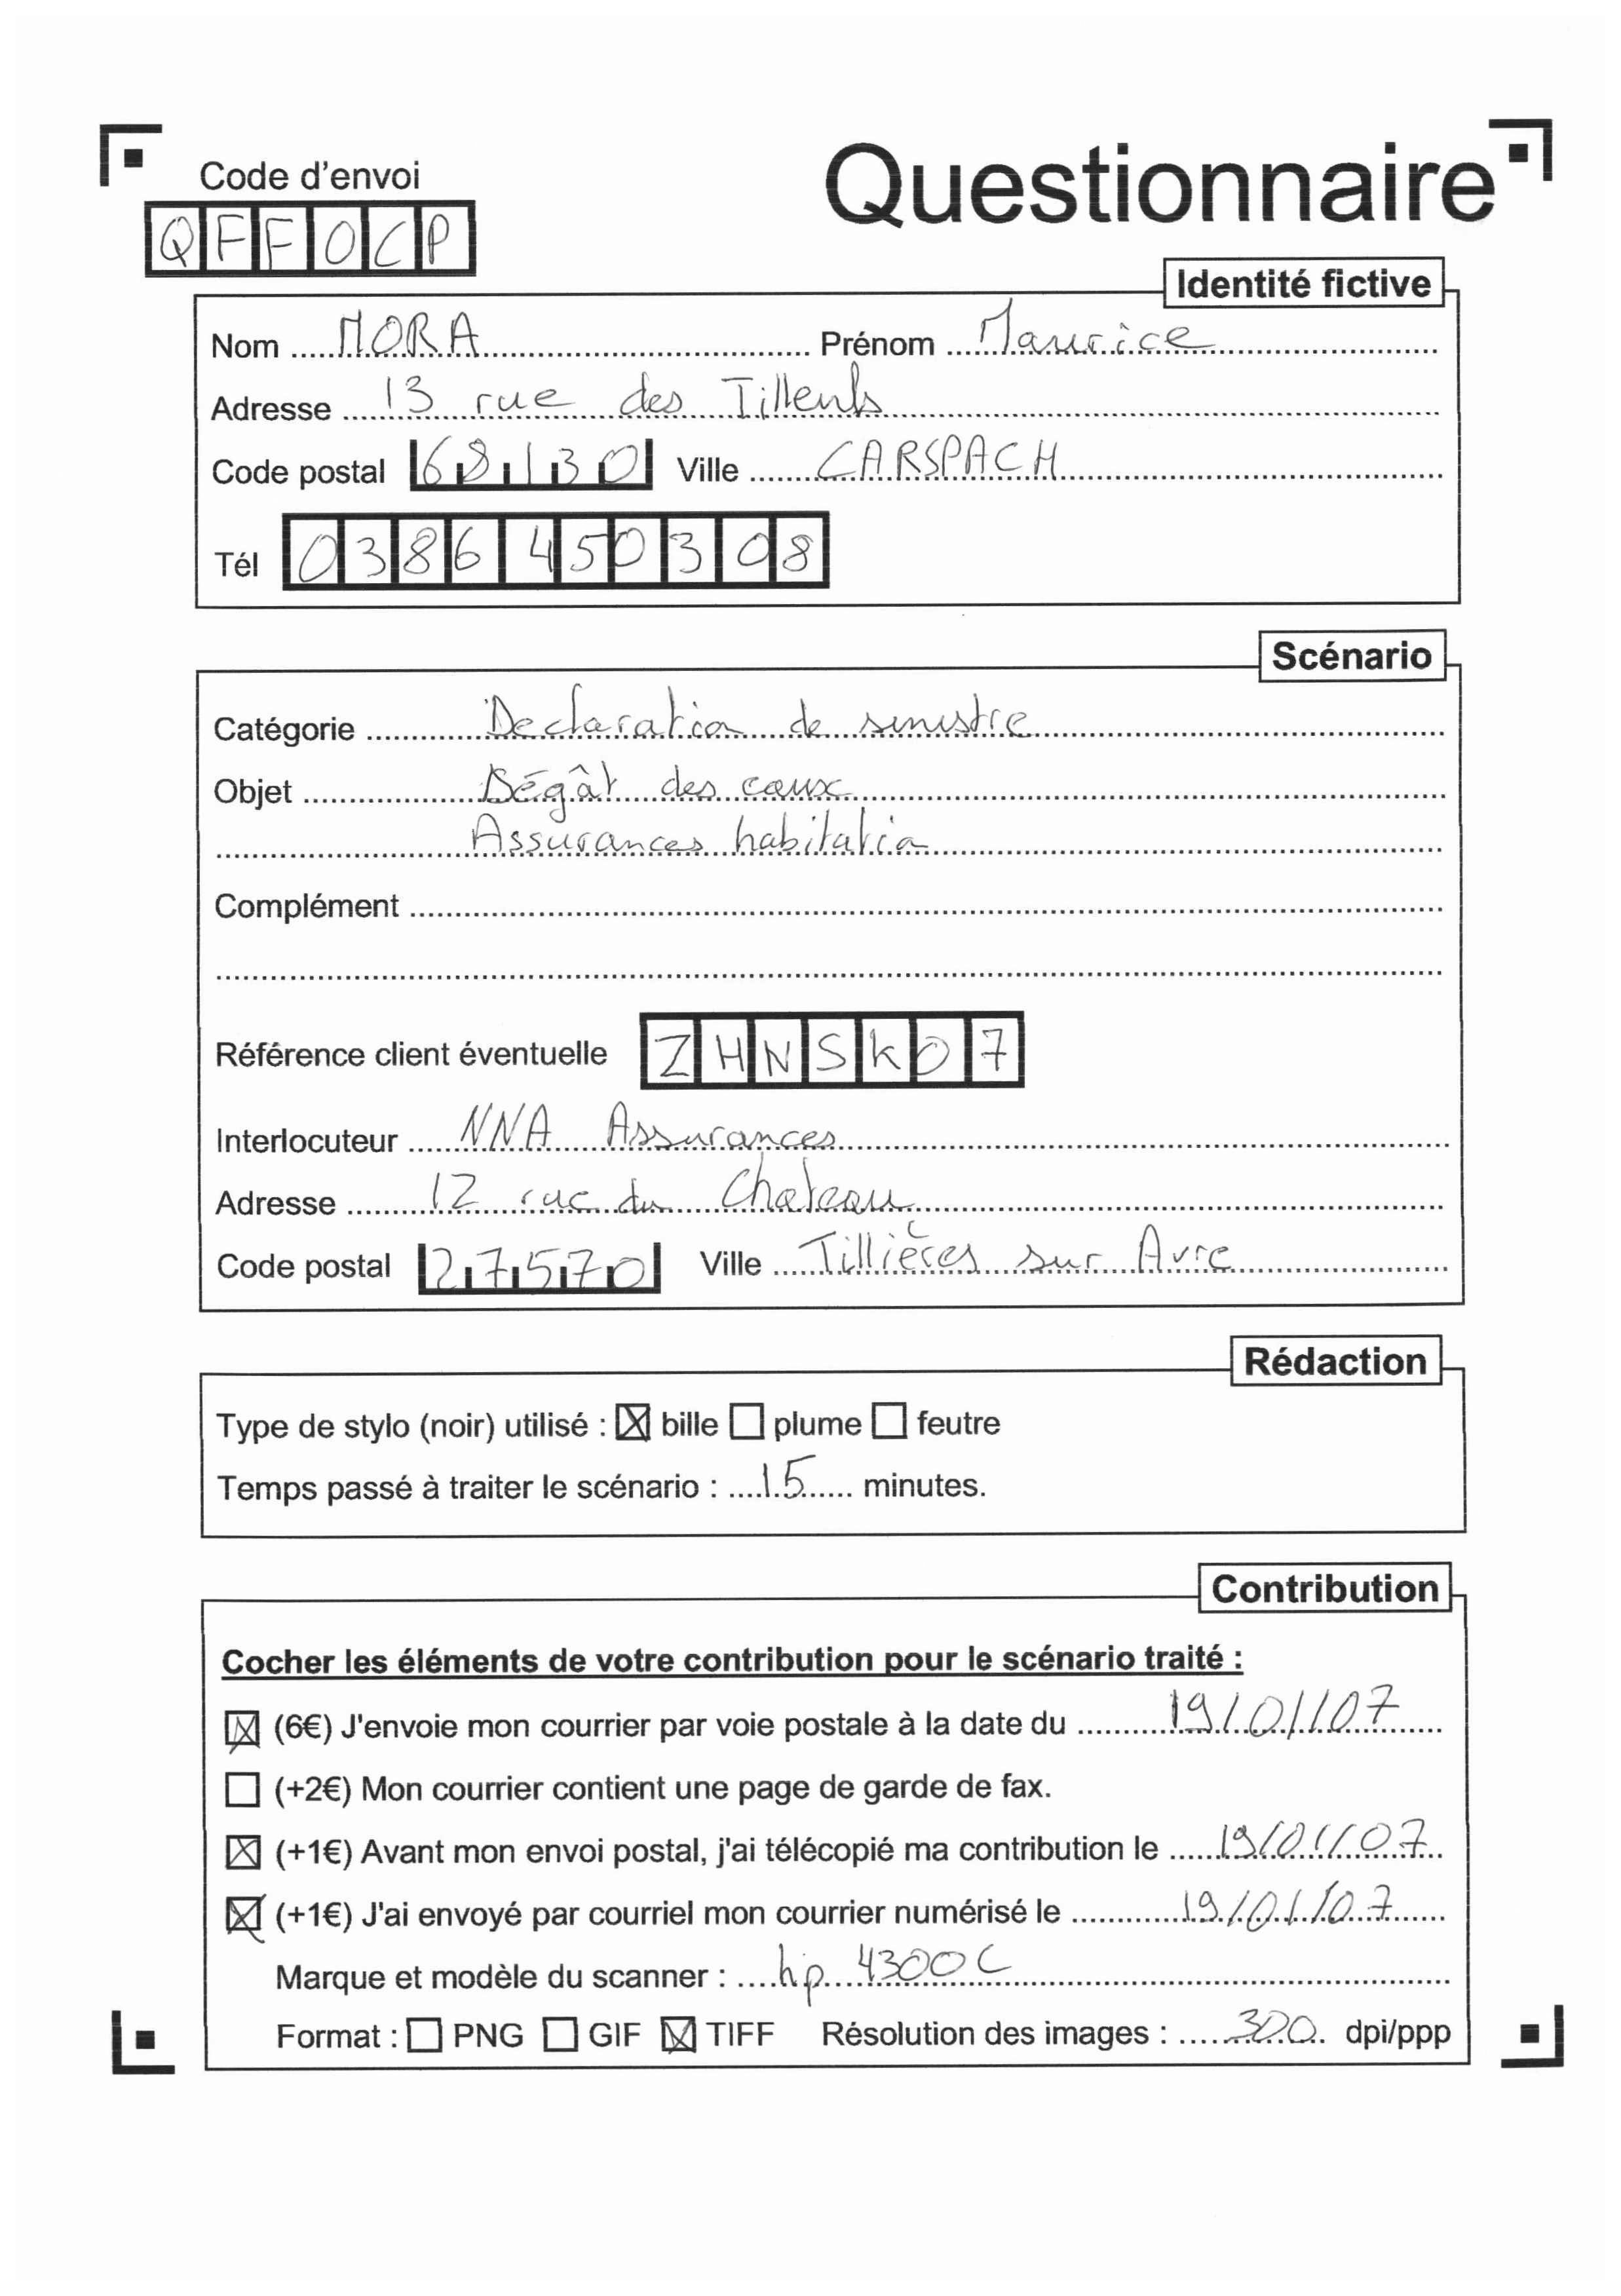 Code d'envoi
Questionnaire
QFFOCP
Identité fictive
Nom MORA Prénom Maurice
Adresse 13 rue des Tilleuls
Code postal 68130 Ville CARSPACH
Tél 0386450308
Scénario
Catégorie Declaration de sinistre
Objet Dégât des eaux
Assurances habitation
Complément
Référence client éventuelle ZHNSK07
Interlocuteur NNA Assurances
Adresse 12 rue du Chateau
Code postal 27570 Ville Tillières sur Avre
Rédaction
Type de stylo (noir) utilisé : ☒ bille ☐ plume ☐ feutre
Temps passé à traiter le scénario : 15 minutes.
Contribution
Cocher les éléments de votre contribution pour le scénario traité :
☒ (6€) J'envoie mon courrier par voie postale à la date du 19/01/07
☐ (+2€) Mon courrier contient une page de garde de fax.
☒ (+1€) Avant mon envoi postal, j'ai télécopié ma contribution le 19/01/07
☒ (+1€) J'ai envoyé par courriel mon courrier numérisé le 19/01/07
Marque et modèle du scanner : hp 4300C
Format : ☐ PNG ☐ GIF ☒ TIFF Résolution des images : 300 dpi/ppp